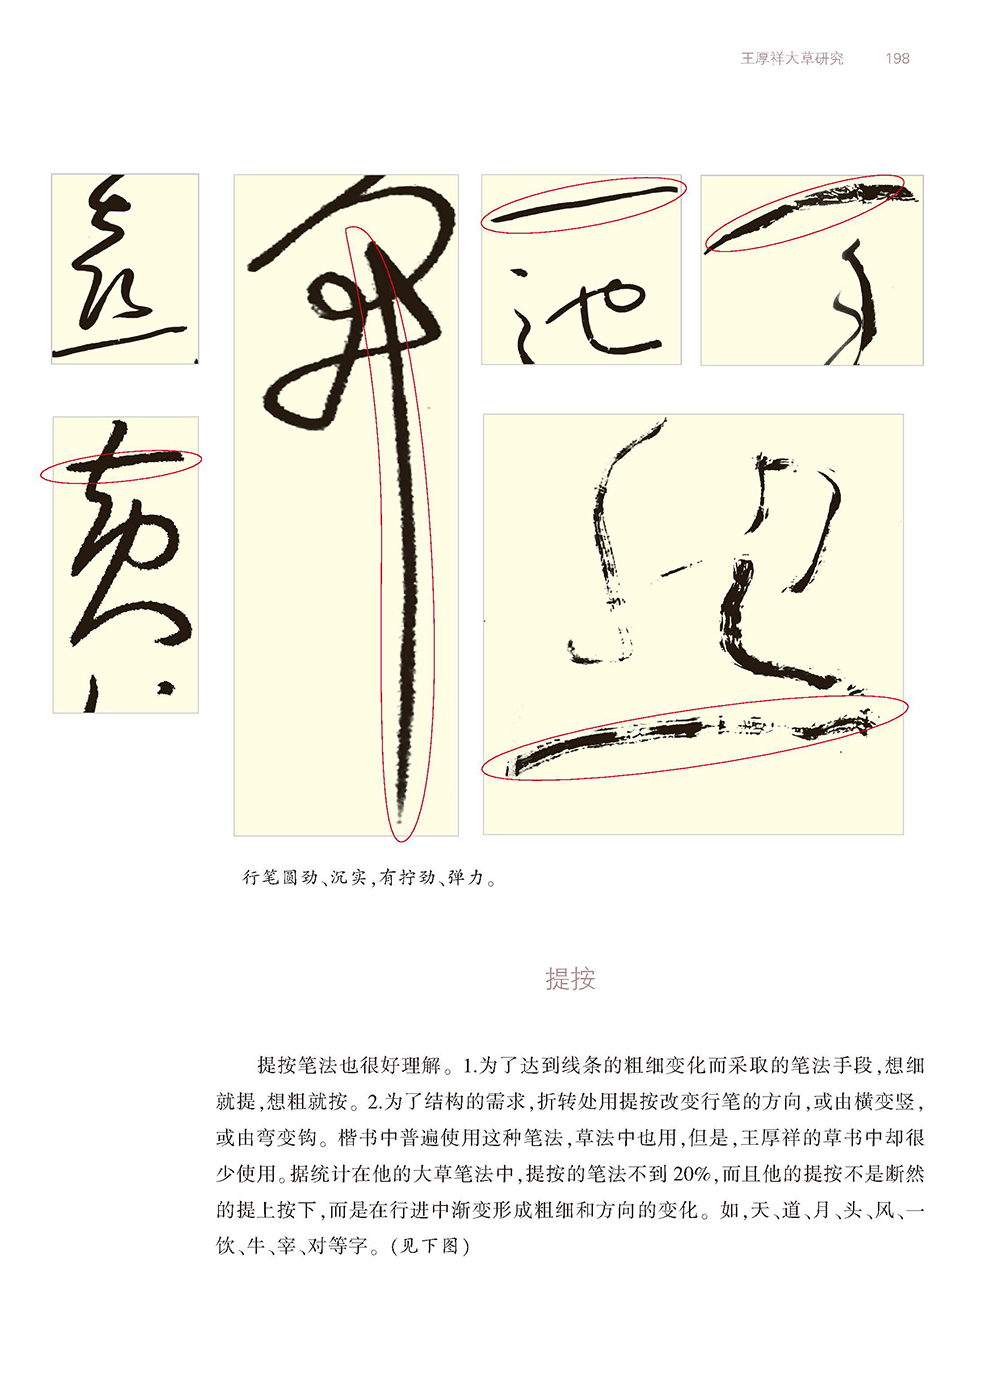 王厚祥大草研究 198
池
行笔圆劲、沉实,有拧劲、弹力。
提按
提按笔法也很好理解。1.为了达到线条的粗细变化而采取的笔法手段,想细
就提,想粗就按。2.为了结构的需求,折转处用提按改变行笔的方向,或由横变竖,
或由弯变钩。楷书中普遍使用这种笔法,草法中也用,但是,王厚祥的草书中却很
少使用。据统计在他的大草笔法中,提按的笔法不到20%,而且他的提按不是断然
的提上按下,而是在行进中渐变形成粗细和方向的变化。如,天、道、月、头、风、一
饮、牛、宰、对等字。(见下图)